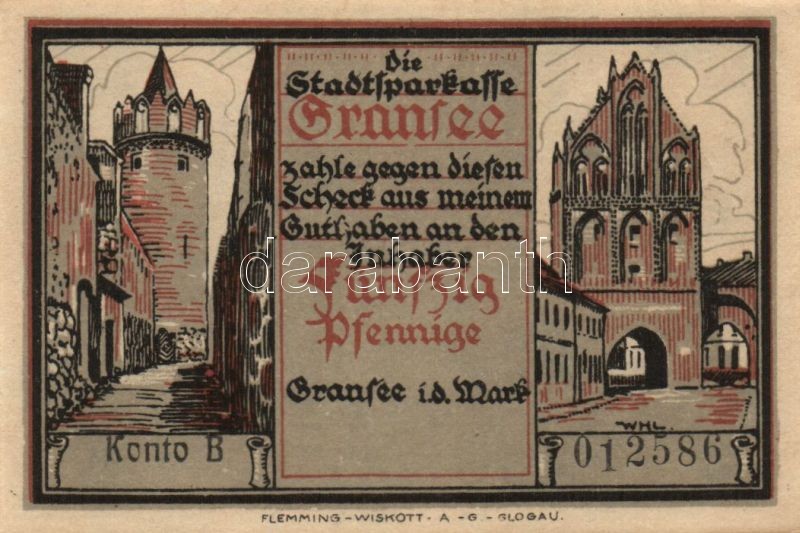 Die
Stadtsparkasse
Gransee
zahle gegen diesen
Scheck aus meinem
Guthaben an den
Inhaber
Fünfzig
Pfennige
Gransee i.d. Mark
Konto B
WHL.
012586
FLEMMING-WISKOTT-A-G.-GLOGAU.
darabanth